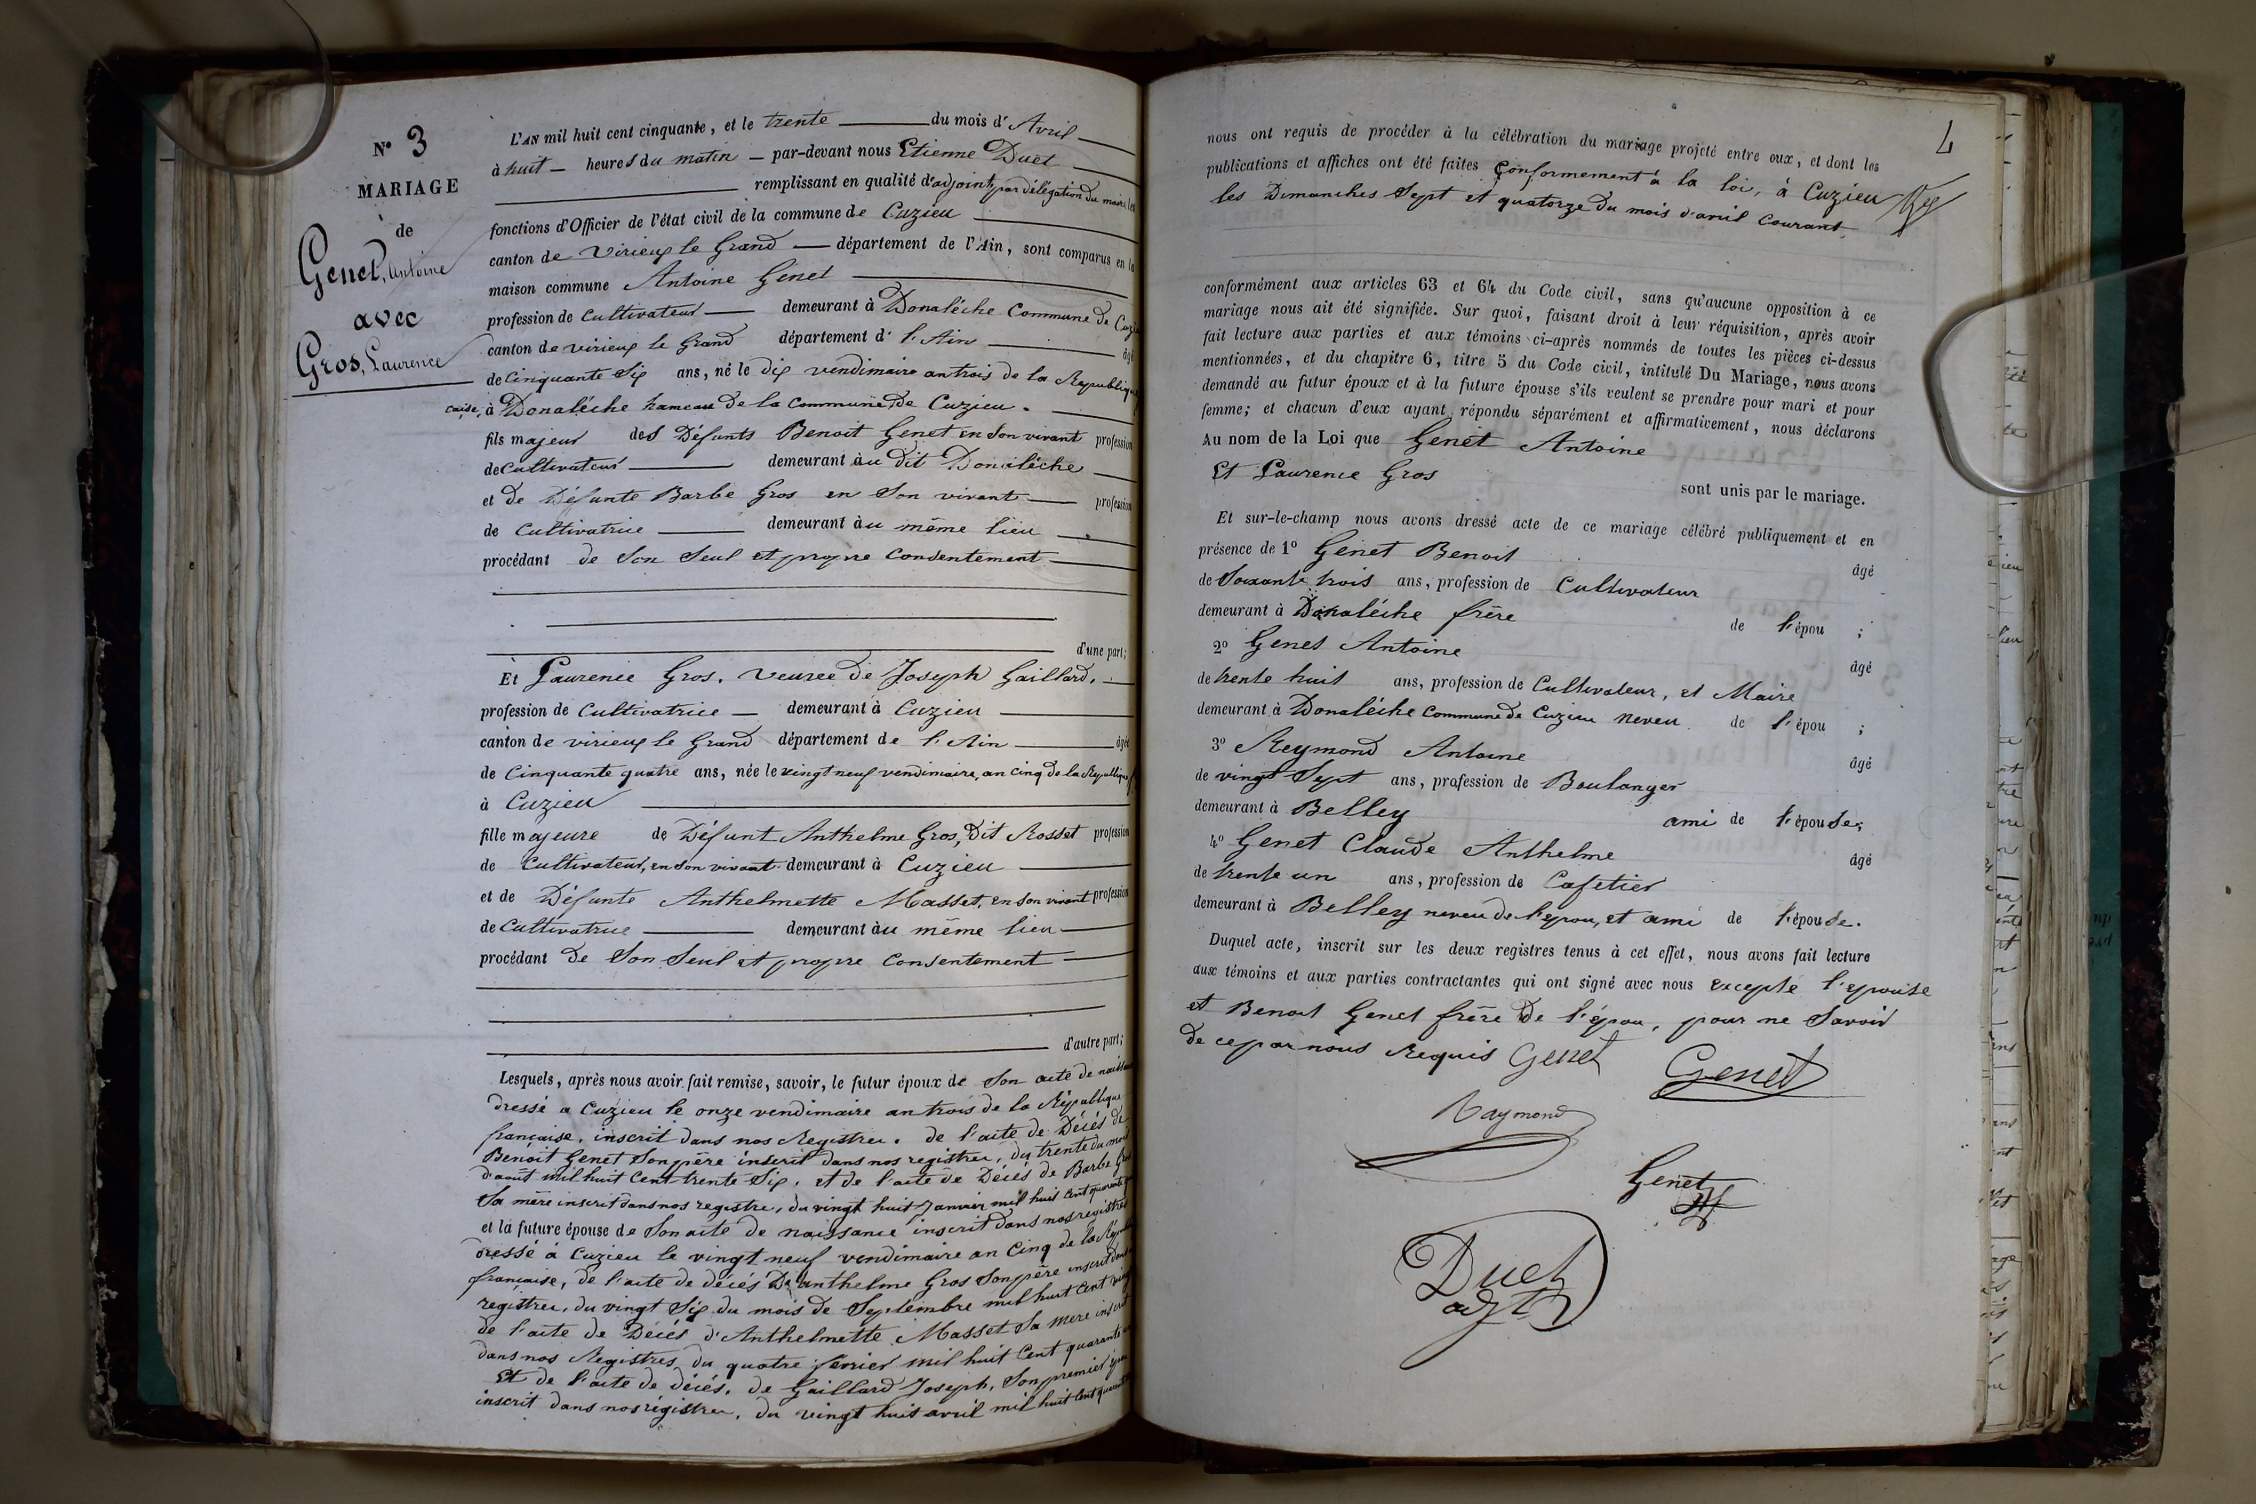 N° 3
MARIAGE
de
Genet, Antoine
avec
Gros, Laurence
L'AN mil huit cent cinquante, et le trente du mois d'Avril
à huit heures du matin par-devant nous Etienne Duet
remplissant en qualité d'adjoint, par délégation du maire, les
fonctions d'Officier de l'état civil de la commune de Cuzieu
canton de Virieux le Grand département de l'Ain, sont comparus en la
maison commune Antoine Genet
profession de Cultivateur demeurant à Donaléche Commune de
canton de virieux le Grand département d' l'Ain âgé
de Cinquante Six ans, né le dix vendimaire an trois de la Republique
çaise, à Donaléche hameau de la Commune de Cuzieu.
fils majeur des Défunts Benoit Genet en son vivant profession
de Cultivateur demeurant àu dit Donaléche
et de Défunte Barbe Gros en son vivant profession
de Cultivatrice demeurant àu même lieu
procédant de son Seul et propre Consentement
d'une part;
Et Laurence Gros, veuvee de Joseph Gaillard,
profession de Cultivatrice demeurant à Cuzieu
canton de virieux le Grand département de l'Ain âgée
de Cinquante quatre ans, née le vingt neuf vendimaire, an cinq de la Republique
à Cuzieu
fille majeure de Défunt Anthelme Gros, Dit Rosset profession
de Cultivateur, en son vivant demeurant à Cuzieu
et de Défunte Anthelmette Masset, en son vivant profession
de Cultivatrice demeurant àu même lieu
procédant de Son Seul et propre Consentement
d'autre part;
Lesquels, après nous avoir fait remise, savoir, le futur époux de Son acte de naissance
dressé a Cuzieu le onze vendimaire an trois de la République
française, inscrit dans nos Registres. de l'acte de Décés de
Benoit Genet Son père inscrit dans nos registres, du trente du mois
d'août mil huit Cent trente Six, et de l'acte de Décés de Barbe Gros
Sa mère inscrit dans nos registres, du vingt huit Janvier mil huit Cent quarante
et la future épouse de Son acte de naissance inscrit dans nos registres
dressé à Cuzieu le vingt neuf vendimaire an Cinq de la République
française, de l'acte de décés D'anthelme Gros Son père inscrit dans
registres, du vingt Six du mois de Septembre mil huit Cent
de l'acte de Décés d'Anthelmette Masset Sa mère inscrit
dans nos Registres du quatre fevrier mil huit Cent quarante
Et de l'acte de décés, de Gaillard Joseph, Son premier époux
inscrit dans nos régistres, du vingt huit avril mil huit Cent
4
nous ont requis de procéder à la célébration du mariage projeté entre eux, et dont les
publications et affiches ont été faites Conformement à la loi, à Cuzieu
les Dimanches Sept et quatorze Du mois d'avril Courant
conformément aux articles 63 et 64 du Code civil, sans qu'aucune opposition à ce
mariage nous ait été signifiée. Sur quoi, faisant droit à leur réquisition, après avoir
fait lecture aux parties et aux témoins ci-après nommés de toutes les pièces ci-dessus
mentionnées, et du chapitre 6, titre 5 du Code civil, intitulé Du Mariage, nous avons
demandé au futur époux et à la future épouse s'ils veulent se prendre pour mari et pour
femme; et chacun d'eux ayant répondu séparément et affirmativement, nous déclarons
Au nom de la Loi que Genet Antoine
Et Laurence Gros
sont unis par le mariage.
Et sur-le-champ nous avons dressé acte de ce mariage célébré publiquement et en
présence de 1° Genet Benoit âgé
de Soixante trois ans, profession de Cultivateur
demeurant à Donaléche frère de l'épou ;
2° Genet Antoine âgé
de trente huit ans, profession de Cultivateur, et Maire
demeurant à Donaléche Commune de Cuzieu Neveu de l'épou ;
3° Reymond Antoine âgé
de vingt Sept ans, profession de Boulanger
demeurant à Belley ami de l'épouse;
4° Genet Claude Anthelme âgé
de trente un ans, profession de Cafetier
demeurant à Belley neveu de l'epou, et ami de l'épouse.
Duquel acte, inscrit sur les deux registres tenus à cet effet, nous avons fait lecture
aux témoins et aux parties contractantes qui ont signé avec nous excepté l'epouse
et Benoit Genet frère de l'épou, pour ne Savoir
de ce par nous Requis Genet
Genet
Raymond
Genet
Duet
adjt